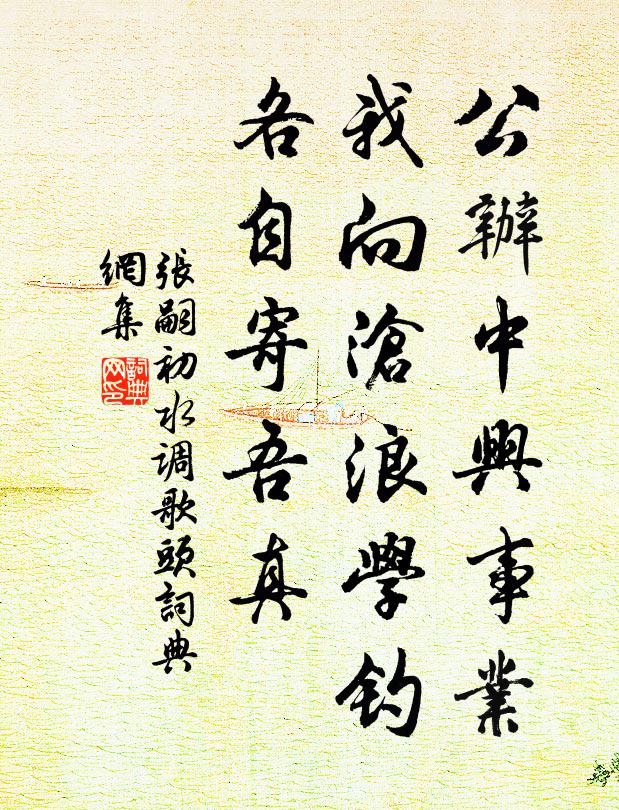 公辦中興事業
我向滄浪學钓
各自寄吾真
張嗣初水调歌頭詞典
網集
詞典
网印